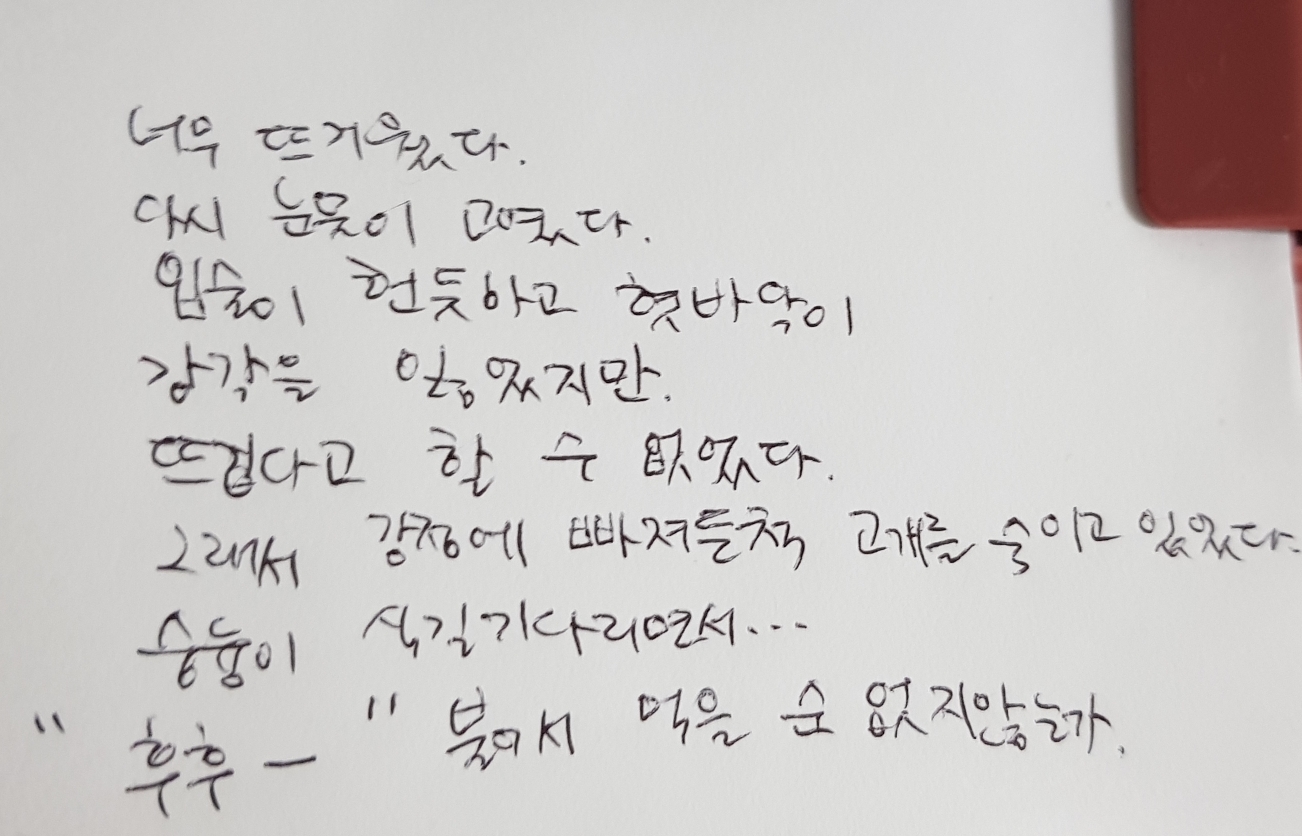 너무 뜨거웠다.
다시 눈물이 고였다.
입술이 헌듯하고 혓바닥이
감각을 잃었지만.
뜨겁다고 할 수 없었다.
그래서 감정에 빠져든척 고개를 숙이고 있었다.
숭늉이 식길기다리면서...
"후후-" 불어서 먹을 순 없지않는가.